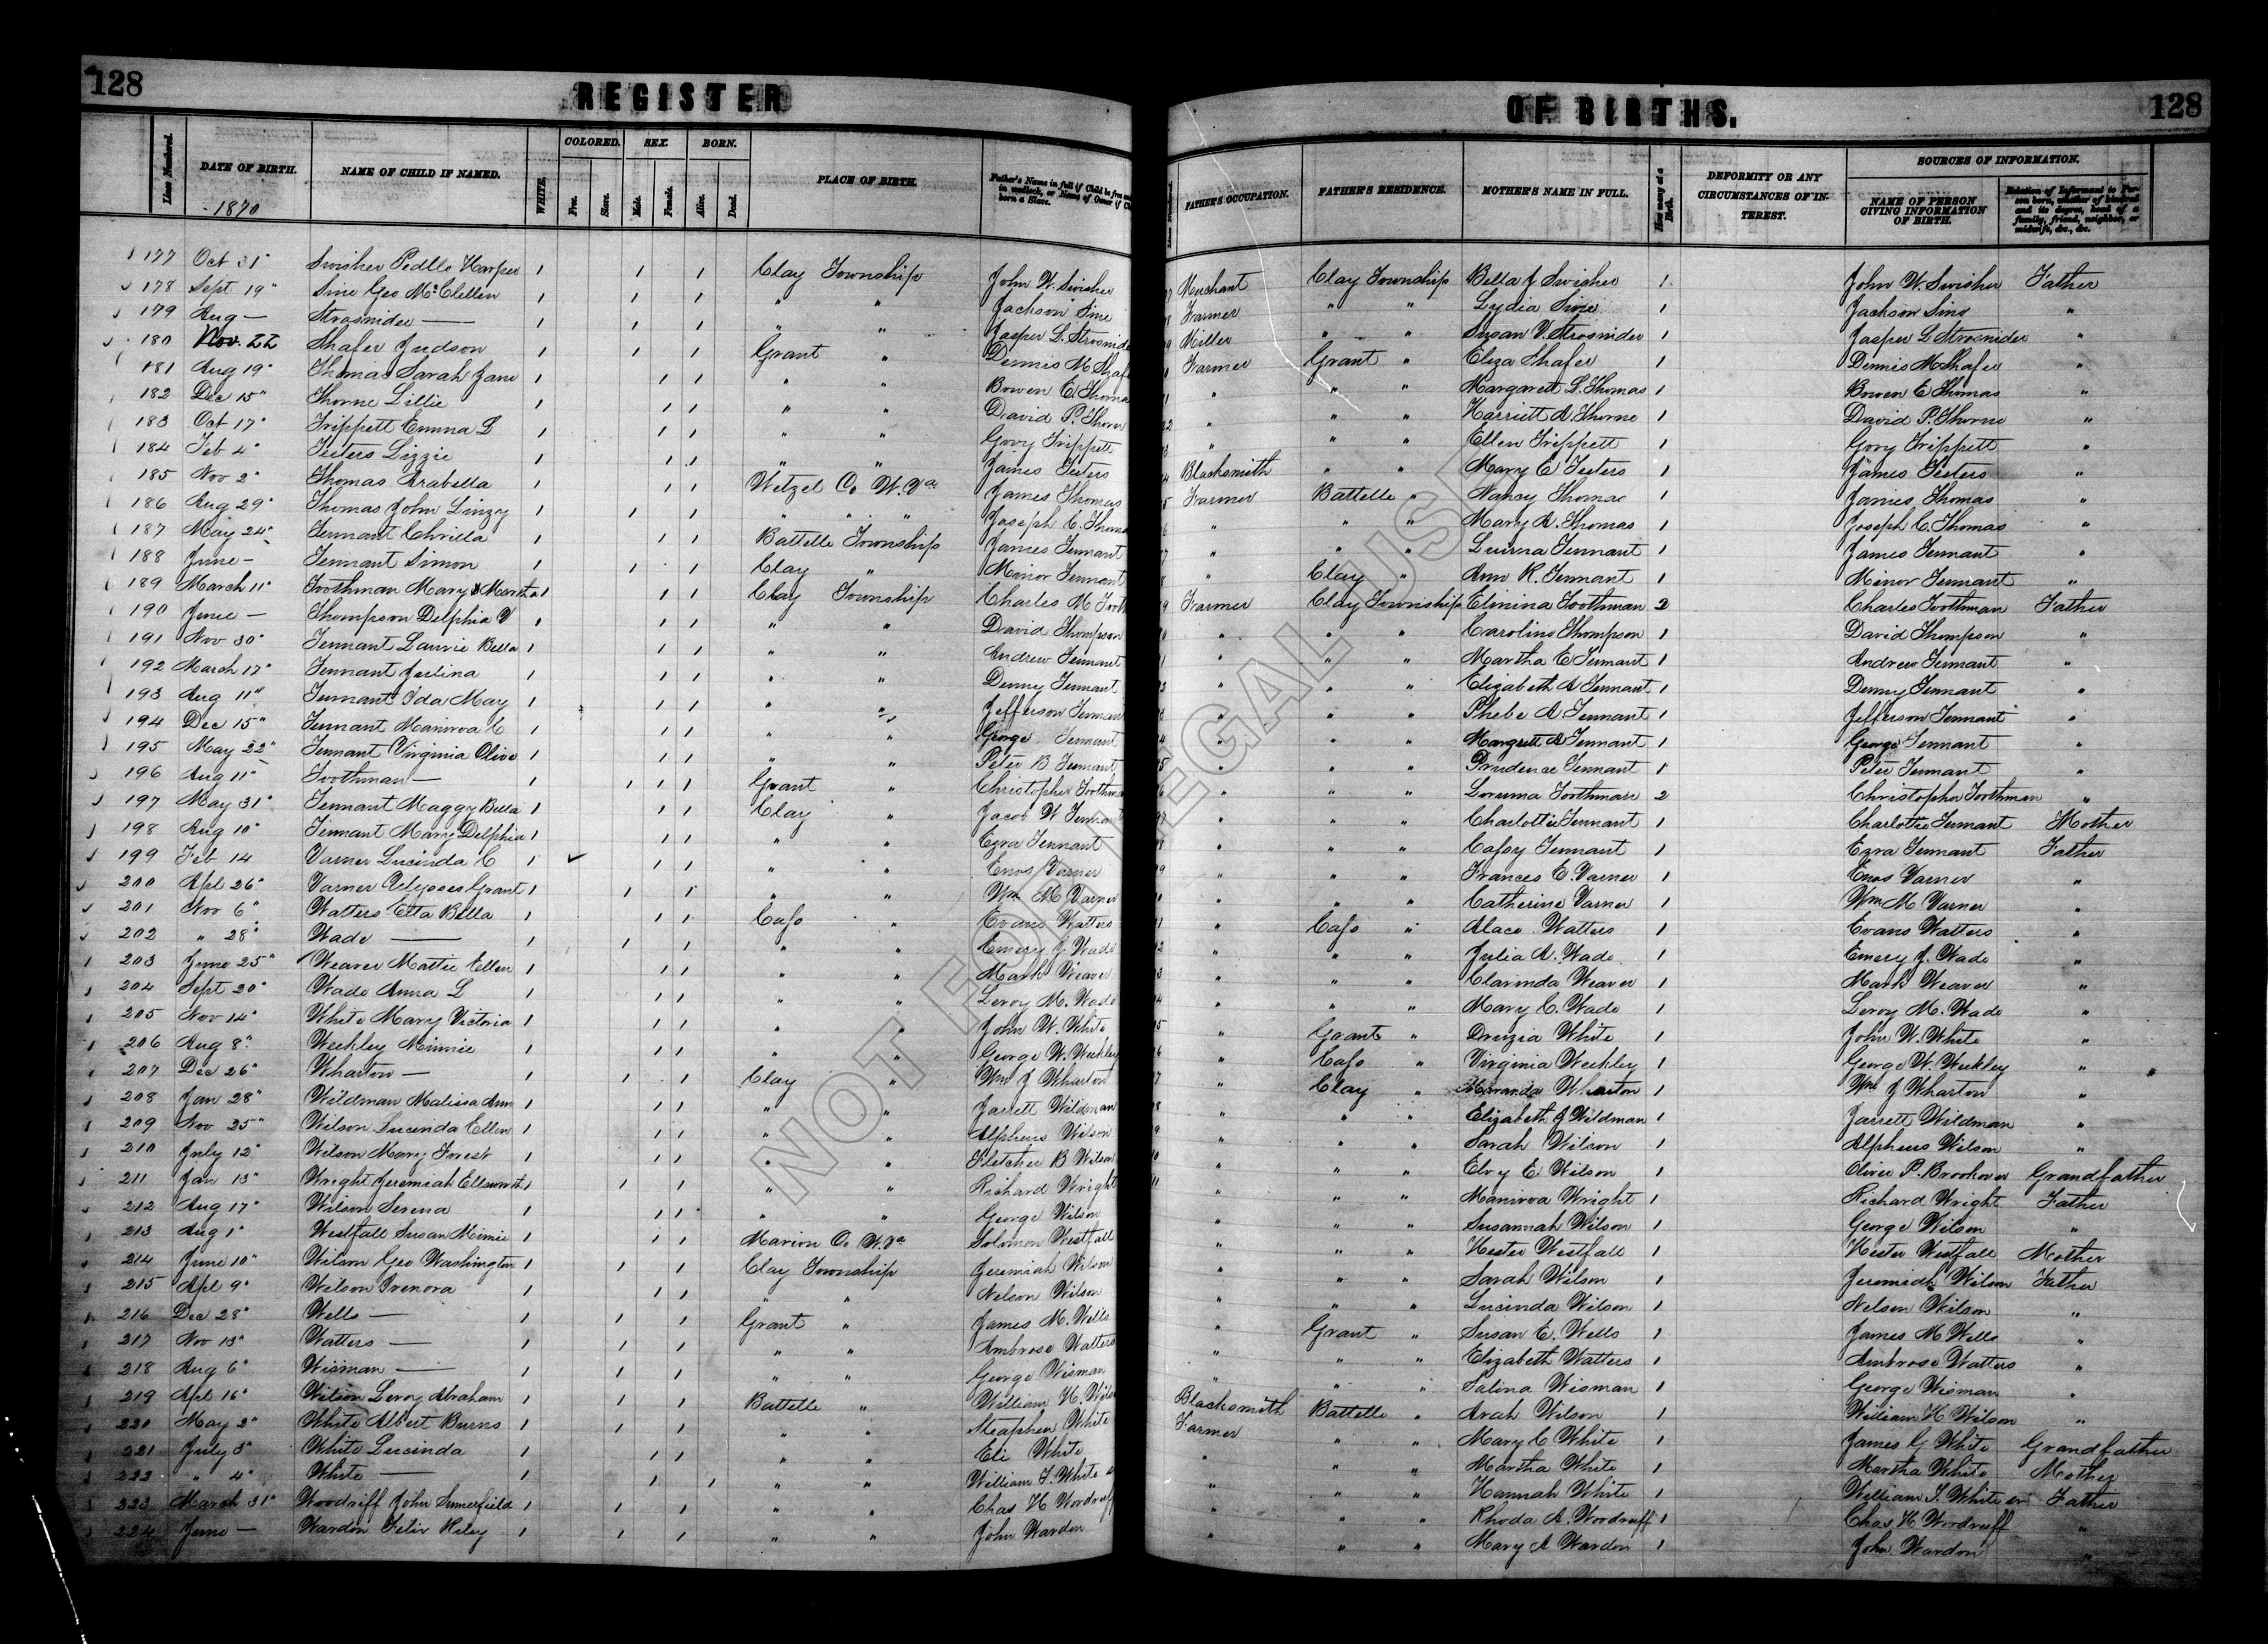 128 REGISTER OF BIRTHS. 128
Lines Numbered. DATE OF BIRTH. NAME OF CHILD IF NAMED. WHITE. COLORED. Free. Slave. SEX. Male. Female. BORN. Alive. Dead. PLACE OF BIRTH. Father's Name in full if Child be free and born in wedlock, or Name of Owner if Child born a Slave. FATHER'S OCCUPATION. FATHER'S RESIDENCE. MOTHER'S NAME IN FULL. How many at a Birth. DEFORMITY OR ANY CIRCUMSTANCES OF INTEREST. SOURCES OF INFORMATION. NAME OF PERSON GIVING INFORMATION OF BIRTH. Relation of Informant to Person born, whether of kindred and its degree, head of a family, friend, neighbor, or midwife, &c., &c.
1870
177 Oct 31" Swisher Harper 1 1 1 Clay Township John W. Swisher Merchant Clay Township Bella J Swisher 1 John W. Swisher Father
178 Sept 19" Sine Geo McClellen 1 1 1 " " Jackson Sine Farmer " " Lydia Sine 1 Jackson Sine "
179 Aug — Strosnider — 1 1 1 " " Jasper L. Strosnide Miller " " Susan V. Strosnider 1 Jasper L Strosnider "
180 Nov. 22 Shafer Judson 1 1 1 Grant " Dennis M Shaf Farmer Grant " Eliza Shafer 1 Dennis M Shafer "
181 Aug 19" Thomas Sarah Jane 1 1 1 " " Bowen E. Thoma " " " Margarett L. Thomas 1 Bowen E Thomas "
182 Dec 15" Thorne Lillie 1 1 1 " " David P. Thorn " " " Harriett A Thorne 1 David P. Thorne "
183 Oct 17" Trippett Emma D 1 1 1 " " Govy Trippett " " " Ellen Trippett 1 Govy Trippett "
184 Feb 4" Teeters Lizzie 1 1 1 " " James Teeters Blacksmith " " Mary E Teeters 1 James Teeters "
185 Nov 2" Thomas Arabella 1 1 1 Wetzel Co W. Va James Thomas Farmer Battelle " Nancy Thomas 1 James Thomas "
186 Aug 29" Thomas John Linzy 1 1 1 " " " Joseph C. Thoma " " " Mary A. Thomas 1 Joseph C. Thomas "
187 May 24" Tennant Chrilla 1 1 1 Battelle Township James Tennant " " " Luirna Tennant 1 James Tennant "
188 June — Tennant Simon 1 1 1 Clay " Minor Tennant " Clay " Ann R. Tennant 1 Minor Tennant "
189 March 11" Toothman Mary & Martha 1 1 1 Clay Township Charles M Tooth Farmer Clay Township Elmina Toothman 2 Charles Toothman Father
190 June — Thompson Delphia V 1 1 1 " " David Thompson " " " Caroline Thompson 1 David Thompson "
191 Nov 30" Tennant Laurie Bella 1 1 1 " " Andrew Tennant " " " Martha E Tennant 1 Andrew Tennant "
192 March 17" Tennant Zulina 1 1 1 " " Denny Tennant " " " Elizabeth A Tennant 1 Denny Tennant "
193 Aug 11" Tennant Ida May 1 1 1 " " Jefferson Tennan " " " Phebe A Tennant 1 Jefferson Tennant "
194 Dec 15" Tennant Manirva C 1 1 1 " " George Tennant " " " Margrett A Tennant 1 George Tennant "
195 May 22" Tennant Virginia Olive 1 1 1 " " Peter B Tennant " " " Prudence Tennant 1 Peter Tennant "
196 Aug 11" Toothman — 1 1 1 1 Grant " Christopher Toothma " " " Loruma Toothman 2 Christopher Toothman "
197 May 31" Tennant Maggy Bella 1 1 1 Clay " Jacob W Tennant " " " Charlottie Tennant 1 Charlottie Tennant Mother
198 Aug 10" Tennant Mary Delphia 1 1 1 " " Ezra Tennant " " " Cassy Tennant 1 Ezra Tennant Father
199 Feb 14 Varner Lucinda C 1 ✓ 1 1 " " Enos Varner " " " Frances E. Varner 1 Enos Varner "
200 Apl 26" Varner Ulysses Grant 1 1 1 " " Wm M Varner " " " Catherine Varner 1 Wm M Varner "
201 Nov 6" Watters Etta Bella 1 1 1 Cass " Evans Watters " Cass " Alace Watters 1 Evans Watters "
202 " 28" Wade — 1 1 1 " " Emery J Wade " " " Julia A. Wade 1 Emery J. Wade "
203 June 25" Weaver Mattie Ellen 1 1 1 " " Mark Weaver " " " Clarinda Weaver 1 Mark Weaver "
204 Sept 20" Wade Anna L 1 1 1 " " Leroy M. Wade " " " Mary C. Wade 1 Leroy M. Wade "
205 Nov 14" White Mary Victoria 1 1 1 " " John W. White " Grant " Druzia White 1 John W. White "
206 Aug 8" Weekley Minnie 1 1 1 " " George W. Weekley " Cass " Virginia Weekley 1 George W. Weekley "
207 Dec 26" Wharton — 1 1 1 Clay " Wm J Wharton " Clay " Wharton 1 Wm J Wharton "
208 Jan 28" Wildman Malissa Ann 1 1 1 " " Jarrett Wildman " " " Elizabeth J Wildman 1 Jarrett Wildman "
209 Nov 25" Wilson Lucinda Ellen 1 1 1 " " Alpheus Wilson " " " Sarah Wilson 1 Alpheus Wilson "
210 July 12" Wilson Mary Forest 1 1 1 " " Fletcher B Wilson " " " Elvy E Wilson 1 Oliver P. Brookover Grandfather
211 Jan 13" Wright Jeremiah Ellsworth 1 1 1 " " Richard Wright " " " Manirva Wright 1 Richard Wright Father
212 Aug 17" Wilson Serena 1 1 1 " " George Wilson " " " Susannah Wilson 1 George Wilson "
213 Aug 1" Westfall Susan Mimie 1 1 1 Marion Co W. Va Solomon Westfall " " " Hester Westfall 1 Hester Westfall Mother
214 June 10" Wilson Geo Washington 1 1 1 Clay Township Jeremiah Wilson " " " Sarah Wilson 1 Jeremiah Wilson Father
215 Apl 9" Wilson Irenora 1 1 1 " " Nelson Wilson " " " Lucinda Wilson 1 Nelson Wilson "
216 Dec 28" Wells — 1 1 1 Grant " James M. Wells " Grant " Susan E. Wells 1 James M Wells "
217 Nov 13" Watters — 1 1 1 " " Ambrose Watters " " " Elizabeth Watters 1 Ambrose Watters "
218 Aug 6" Wisman — 1 1 1 " " George Wisman " " " Salina Wisman 1 George Wisman "
219 Apl 16" Wilson Leroy Abraham 1 1 1 Battelle " William H. Wils Blacksmith Battelle " Arah Wilson 1 William H Wilson "
220 May 2" White Albert Burns 1 1 1 " " Steaphen White Farmer " " Mary C White 1 James G White Grandfather
221 July 3" White Lucinda 1 1 1 " " Eli White " " " Martha White 1 Martha White Mother
222 " 4" White — 1 1 1 " " William T. White " " " Hannah White 1 William T. White sr Father
223 March 31" Woodriff John Sumerfield 1 1 1 " " Chas H Woodruff " " " Rhoda A. Woodruff 1 Chas H Woodruff "
224 June — Wardon Felix Riley 1 1 1 " " John Wardon " " " Mary A Wardon 1 John Wardon "
NOT FOR LEGAL USE